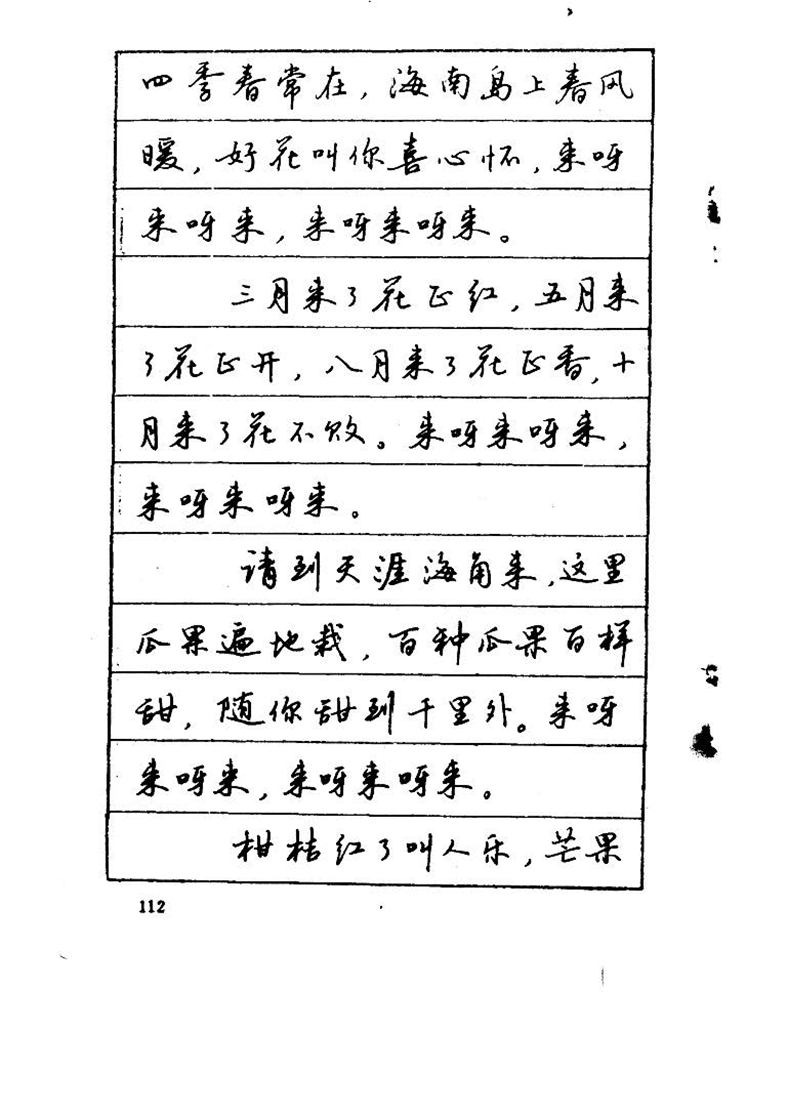 四季春常在，海南岛上春风
暖，好花叫你喜心怀，来呀
来呀来，来呀来呀来。
三月来了花正红，五月来
了花正开，八月来了花正香，十
月来了花不败。来呀来呀来，
来呀来呀来。
请到天涯海角来，这里
瓜果遍地栽，百种瓜果百样
甜，随你甜到千里外。来呀
来呀来，来呀来呀来。
柑桔红了叫人乐，芒果
112